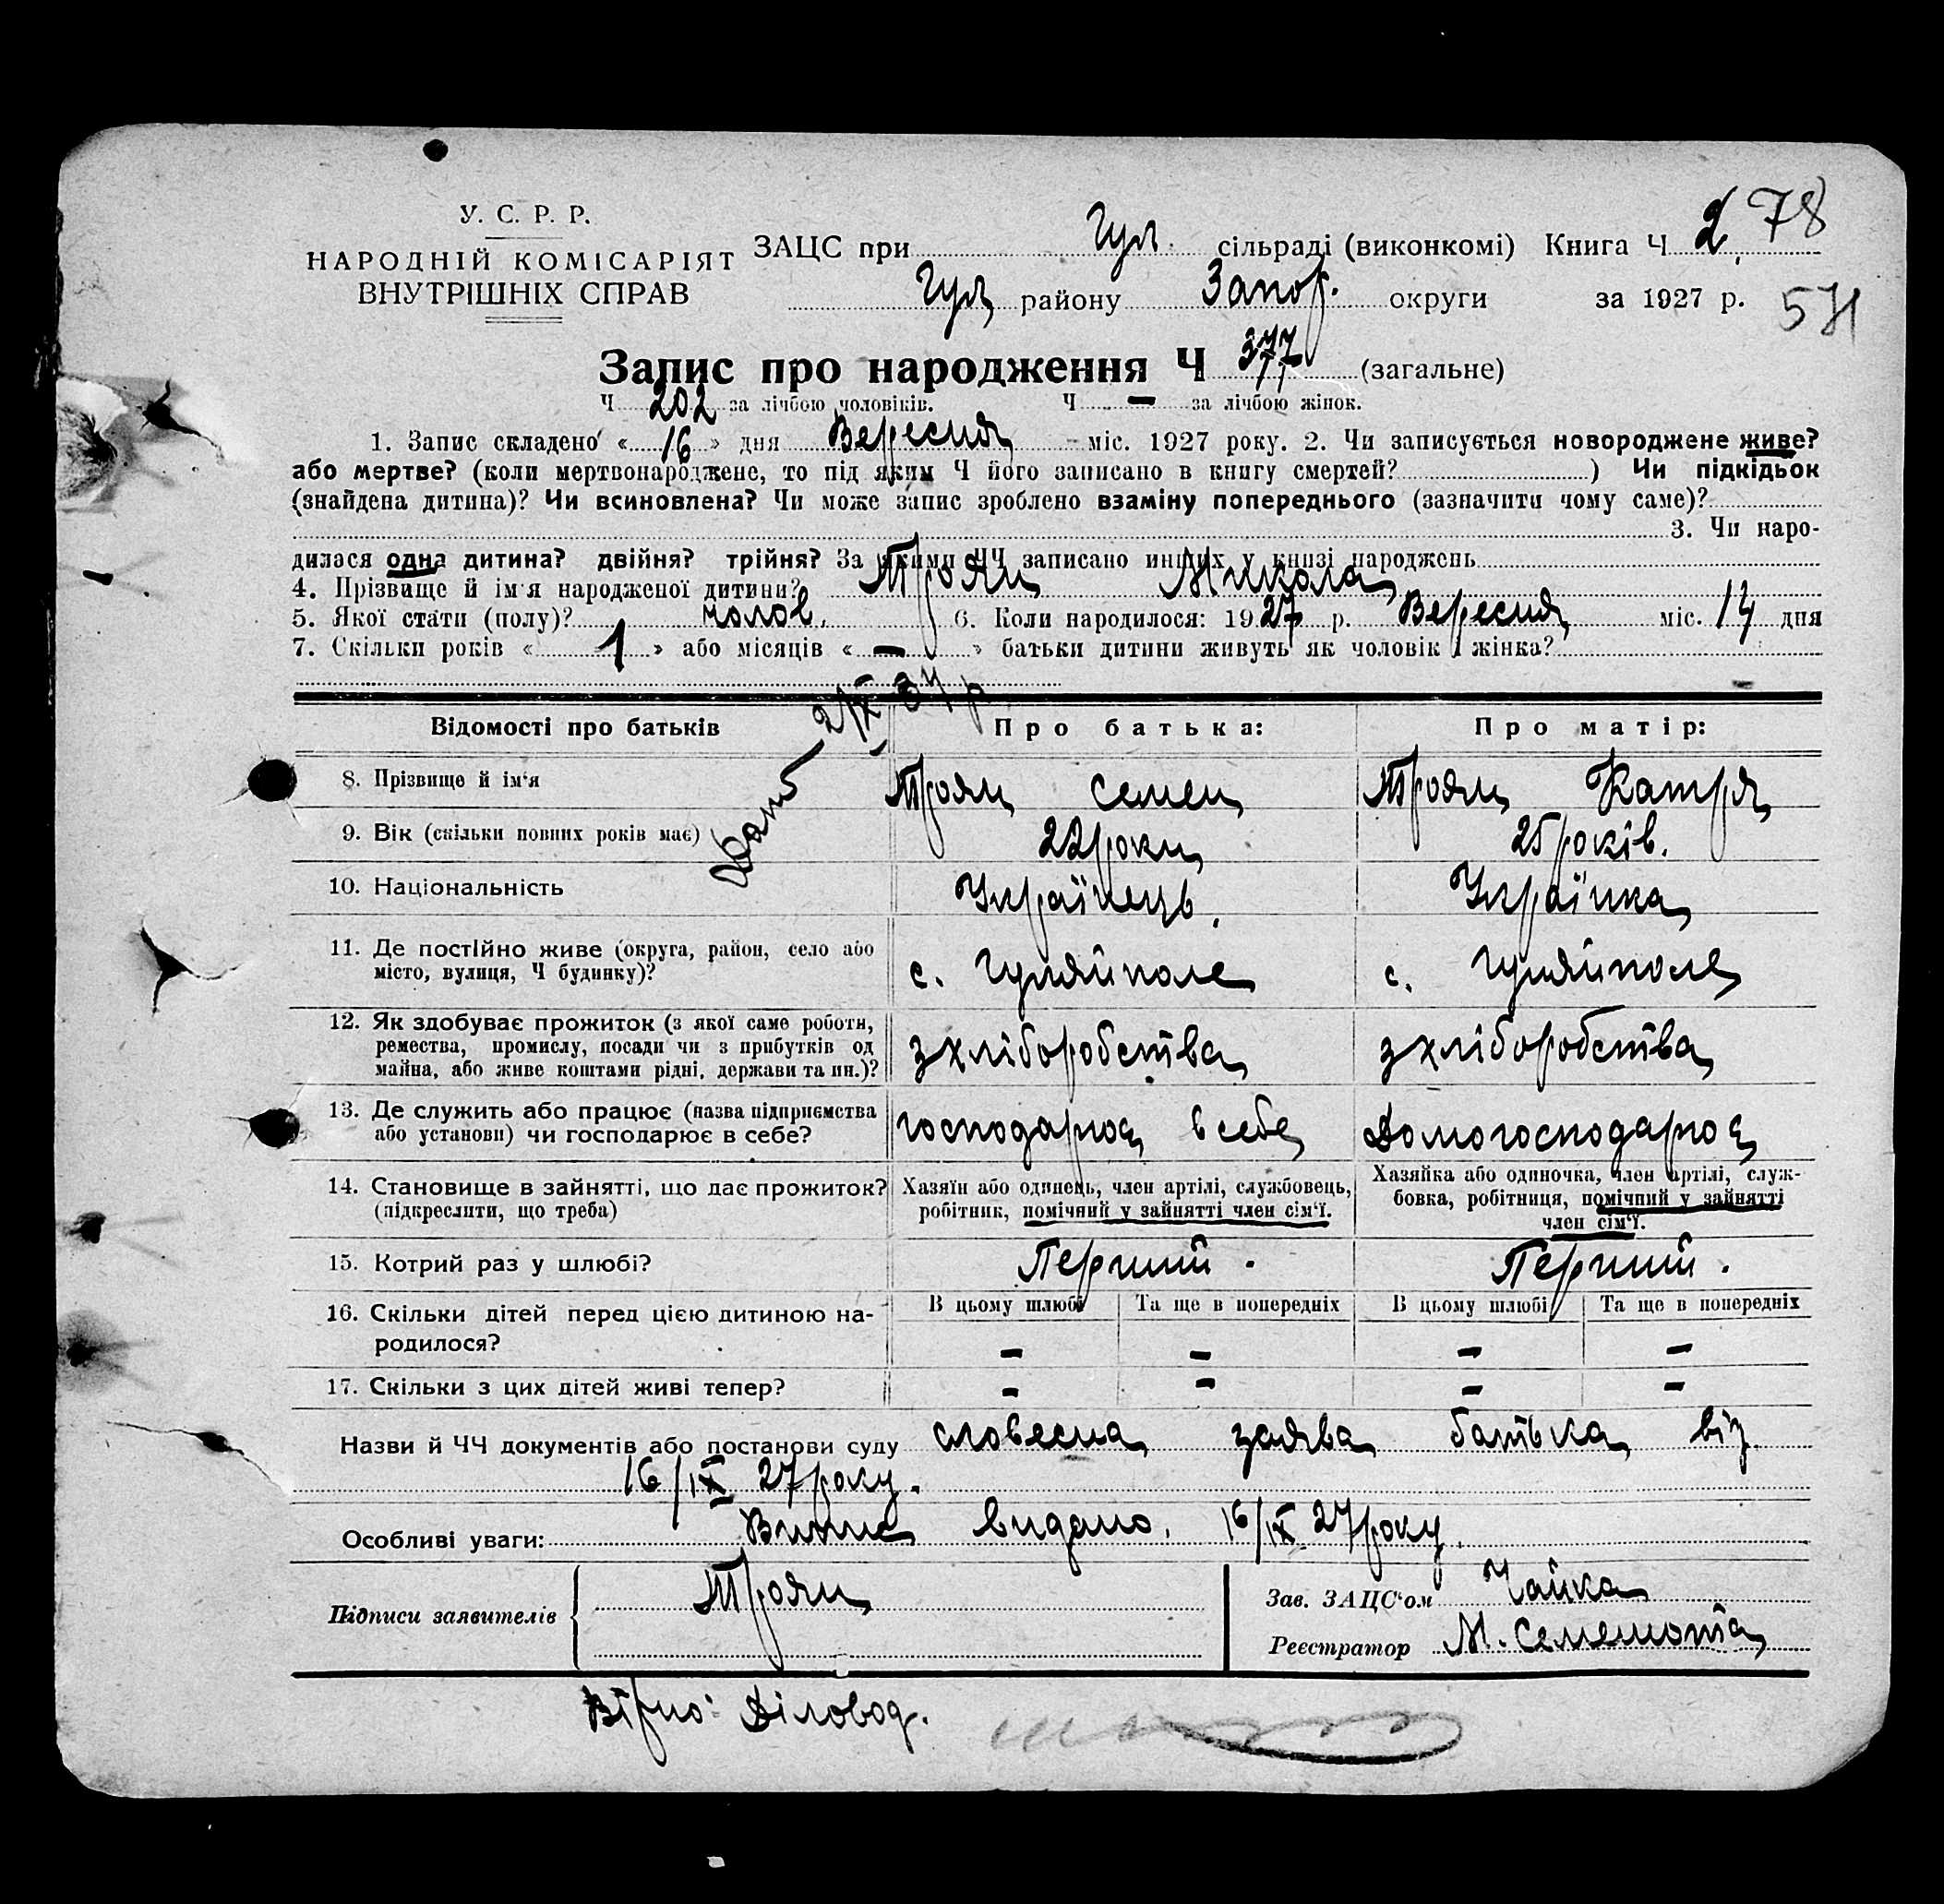 У. С. Р. Р.
НАРОДНІЙ КОМІСАРІЯТ
ВНУТРІШНІХ СПРАВ
ЗАЦС при Гул. сільраді (виконкомі) Книга Ч 2 78
Гул району Запор. округи за 1927 р.
Запис про народження Ч 377 (загальне)
Ч 202 за лічбою чоловіків. Ч — за лічбою жінок.
1. Запис складено «16» дня Вересня міс. 1927 року. 2. Чи записується новороджене живе?
або мертве? (коли мертвонароджене, то під яким Ч його записано в книгу смертей?) Чи підкідьок
(знайдена дитина)? Чи всиновлена? Чи може запис зроблено взаміну попереднього (зазначити чому саме)?
3. Чи наро-
дилася одна дитина? двійня? трійня? За якими ЧЧ записано инших у книзі народжень
4. Прізвище й ім'я народженої дитини? Троян Микола
5. Якої стати (полу)? чолов. 6. Коли народилося: 1927 р. Вересня міс. 14 дня
7. Скільки років «1» або місяців «—» батьки дитини живуть як чоловік і жінка?
Відомості про батьків Про батька: Про матір:
8. Прізвище й ім'я Троян Семен Троян Катря
9. Вік (скільки повних років має) 22 роки 25 років.
10. Національність Українець. Українка
11. Де постійно живе (округа, район, село або
місто, вулиця, Ч будинку)? с. Гуляйполе с. Гуляйполе
12. Як здобуває прожиток (з якої саме роботи,
ремества, промислу, посади чи з прибутків од
майна, або живе коштами рідні, держави та ин.)? з хліборобства з хліборобства
13. Де служить або працює (назва підприємства
або установи) чи господарює в себе? господарює в себе Домогосподарює
14. Становище в зайнятті, що дає прожиток?
(підкреслити, що треба)
Хазяїн або одинець, член артілі, службовець,
робітник, помічний у зайнятті член сім'ї.
Хазяйка або одиночка, член артілі, служ-
бовка, робітниця, помічний у зайнятті
член сім'ї.
15. Котрий раз у шлюбі? Перший. Перший.
16. Скільки дітей перед цією дитиною на-
родилося?
В цьому шлюбі Та ще в попередніх В цьому шлюбі Та ще в попередніх
— — — —
17. Скільки з цих дітей живі тепер? — — — —
Назви й ЧЧ документів або постанови суду словесна заява батька від
16/IX 27 року.
Особливі уваги: Випис видано. 16/IX 27 року.
Підписи заявителів Троян
Зав. ЗАЦС'ом Чайка
Реєстратор М. Семенота
Вірно: Діловод.